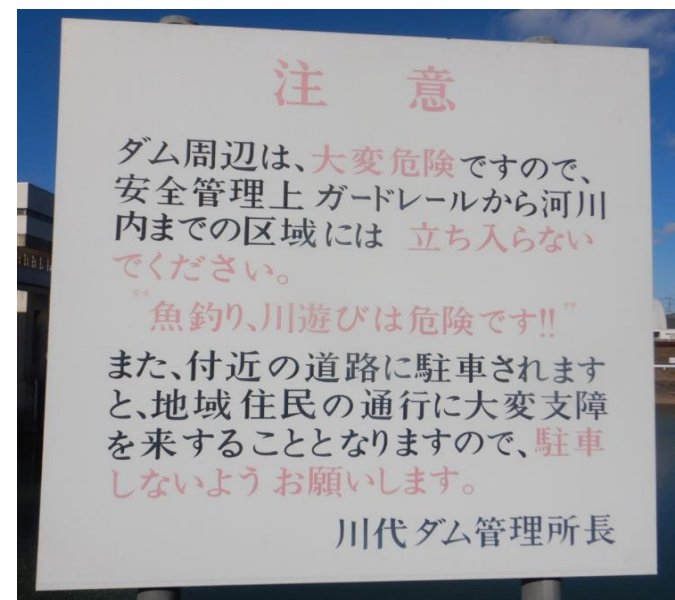 注 意
ダム周辺は、大変危険ですので、
安全管理上 ガードレールから河川
内までの区域には 立ち入らない
でください。
“魚釣り、川遊びは危険です!!”
また、付近の道路に駐車されます
と、地域住民の通行に大変支障
を来することとなりますので、駐車
しないようお願いします。
川代ダム管理所長